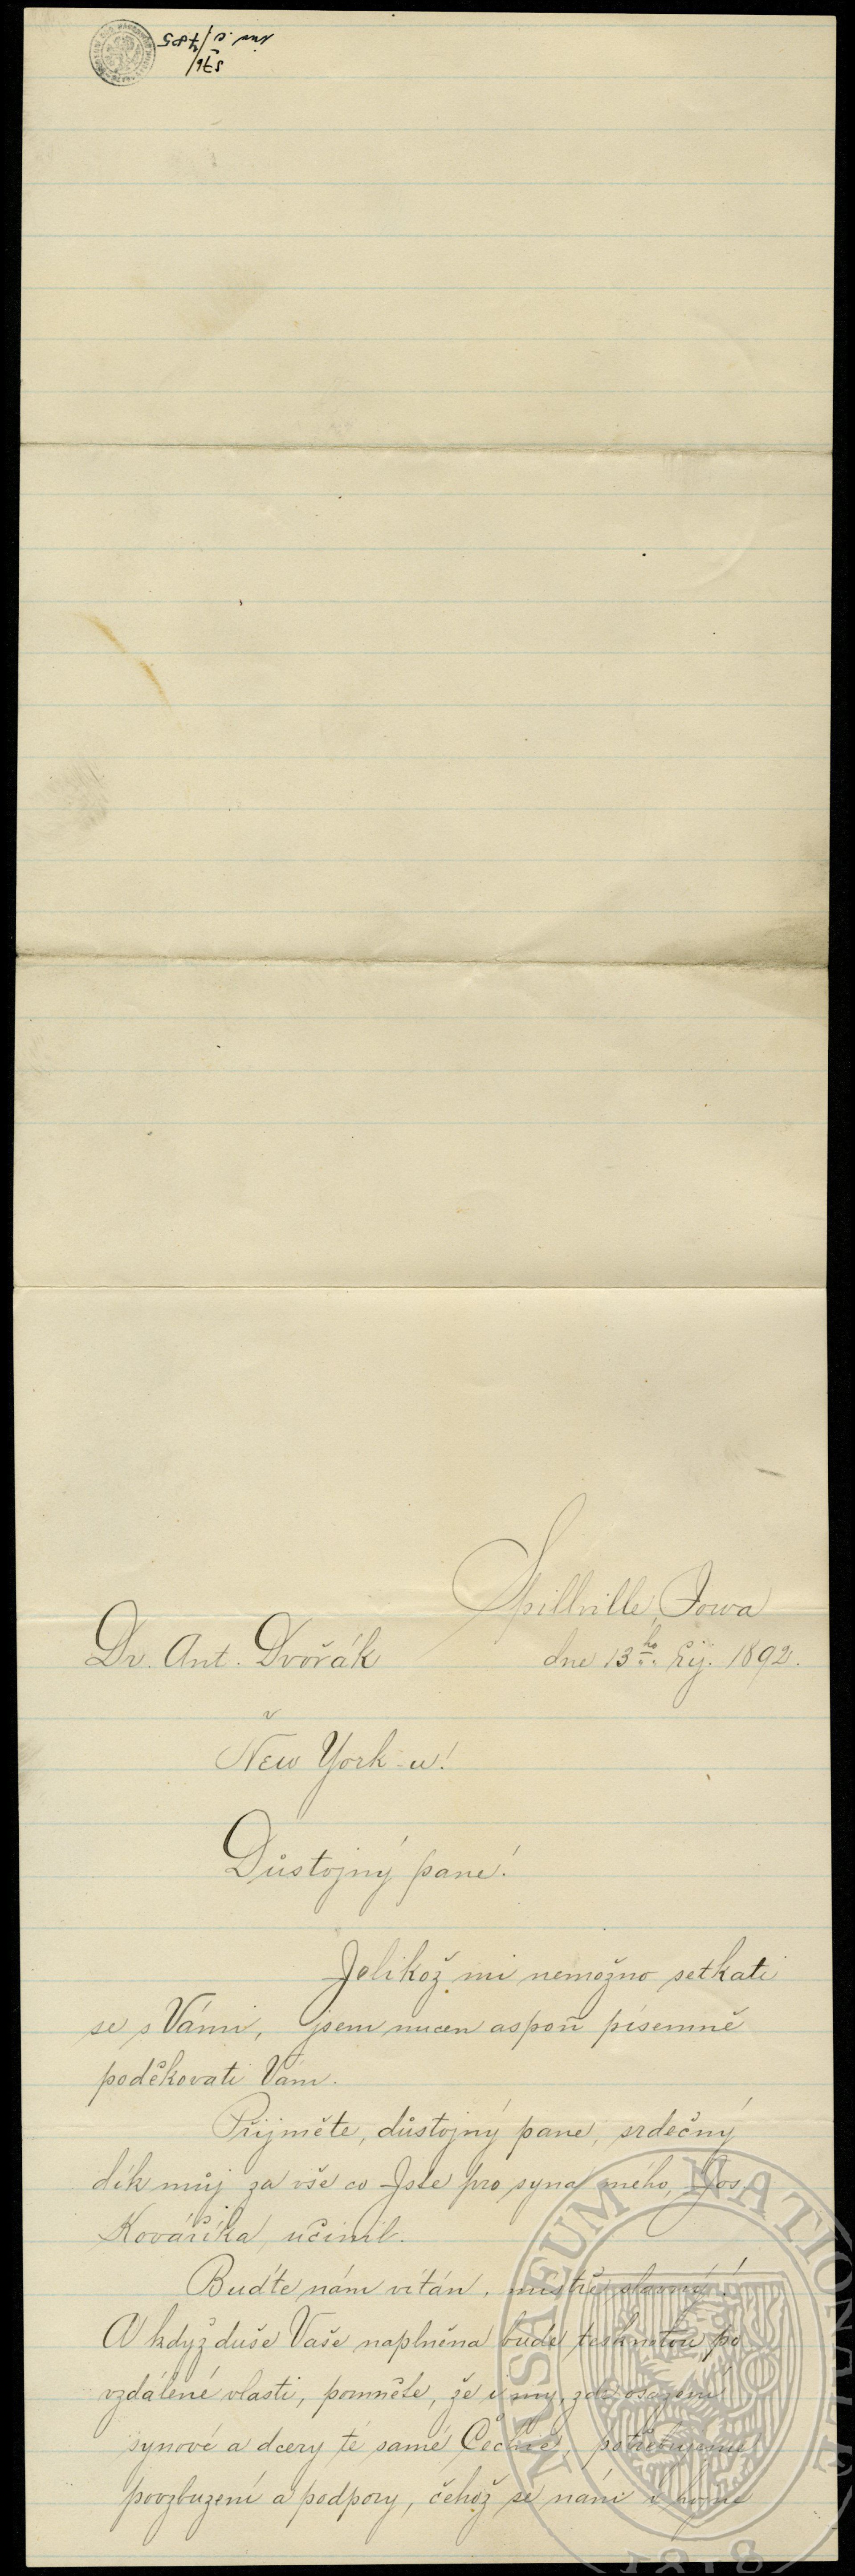 576/
inv. č./485
Spillville, Iowa
Dr. Ant. Dvořák
dne 13ho Říj. 1892.
v
New York-u!
Důstojný pane!
Jelikož mi nemožno setkati
se s Vámi, jsem nucen aspoň písemně
poděkovati Vám.
Přijměte, důstojný pane, srdečný
dík můj za vše co Jste pro syna mého, Jos
Kováříka, učinil.
Buďte nám vítán, mistře slavný!
A když duše Vaše naplněna bude tesknotou po
vzdálené vlasti, pomněte, že i my, zde osazení
synové a dcery té samé Čechie, potřebujeme
povzbuzení a podpory, čehož se nám v
MUSAEUM NATIONALE
1818